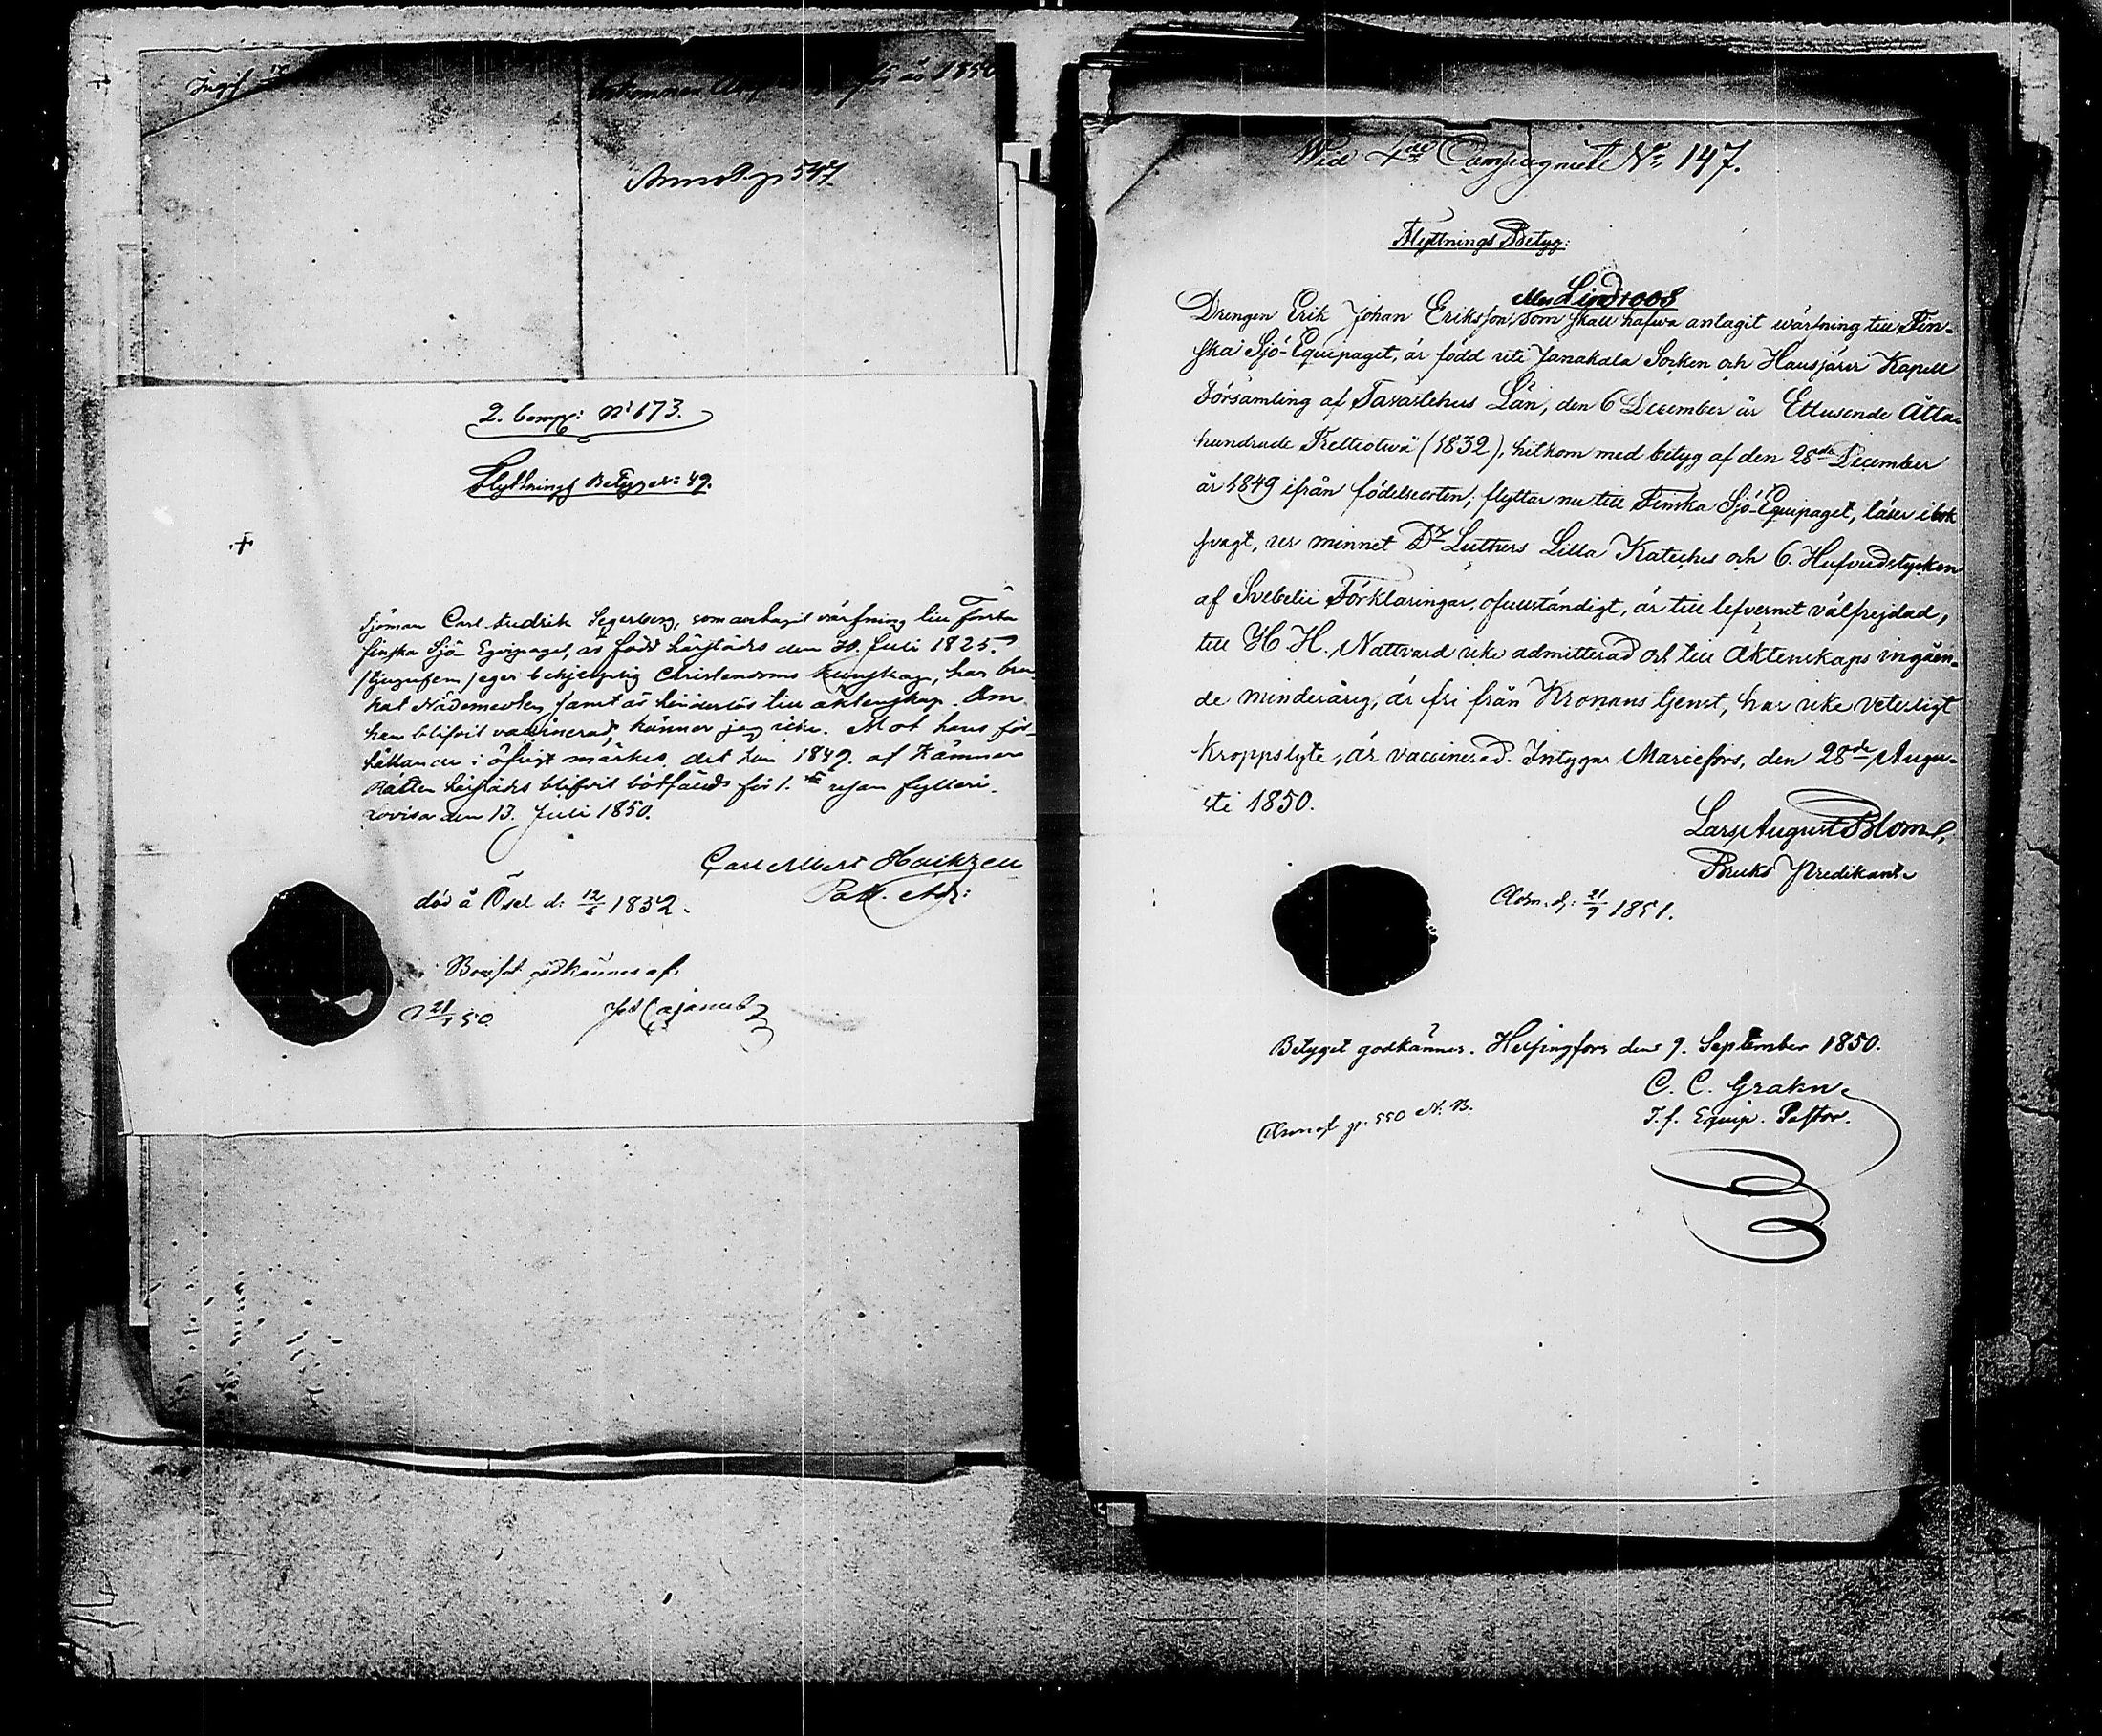 år 1850
Annot. p 547.
2. Comp: No 173.
Flyttnings Betyg No: 49.
Sjöman Carl Fredrik Segerberg, som antagit värfning till Första
finska Sjö-Eqvipaget, är född härstädes den 30. Juli 1825.
/tjugufem/ eger behjelplig Christendoms kunskap, har bru-
kat Nådemedlen samt är hinderlös till äktenskap. Om
han blifvit vaccinerad, känner jag icke. Mot hans för-
hållande i öfrigt märkes, det han 1849. af Kämners
Rätten härstädes blifvit bötfäld för 1.sta resan fylleri.
Lovisa den 13. Juli 1850.
Carl Albert
Past. Adj:
död å Ösel d: 12/6 1852.
Bevisat godkännes af
21/ 50
Cajanus
Wid 4de Compagniet No 147.
Flyttnings Betyg:
eller Lindroos
Drengen Erik Johan Eriksson, som skall hafwa antagit wärfning till Fin-
ska Sjö-Equipaget, är född uti Janakala Socken och Hausjärvi Kapell
Församling af Tavastehus Län, den 6 December år Ettusende Åtta-
hundrade Trettiotwå (1832), hitkom med betyg af den 28de December
år 1849 ifrån födelseorten; flyttar nu till Finska Sjö-Equipaget, läser i bok
svagt, ur minnet Dr Luthers Lilla Kateches och 6. Hufvudstycken
af Svebelii Förklaringar, ofullständigt, är till lefvernet välfrejdad,
till H. H. Nattvard icke admitterad och till Äktenskaps ingåen-
de minderårig, är fri från Kronans tjenst, har icke veterligt
Kroppslyte, är vaccinerad. Intygar Mariefors, den 28de Augu-
sti 1850.
Lars August Blom,
Bruks Predikant.
Adm. d: 21/9 1851.
Betyget godkännes. Helsingfors den 9. September 1850.
C. C. Grahn
T. f. Equip. Pastor.
Annot p. 550 N. B.